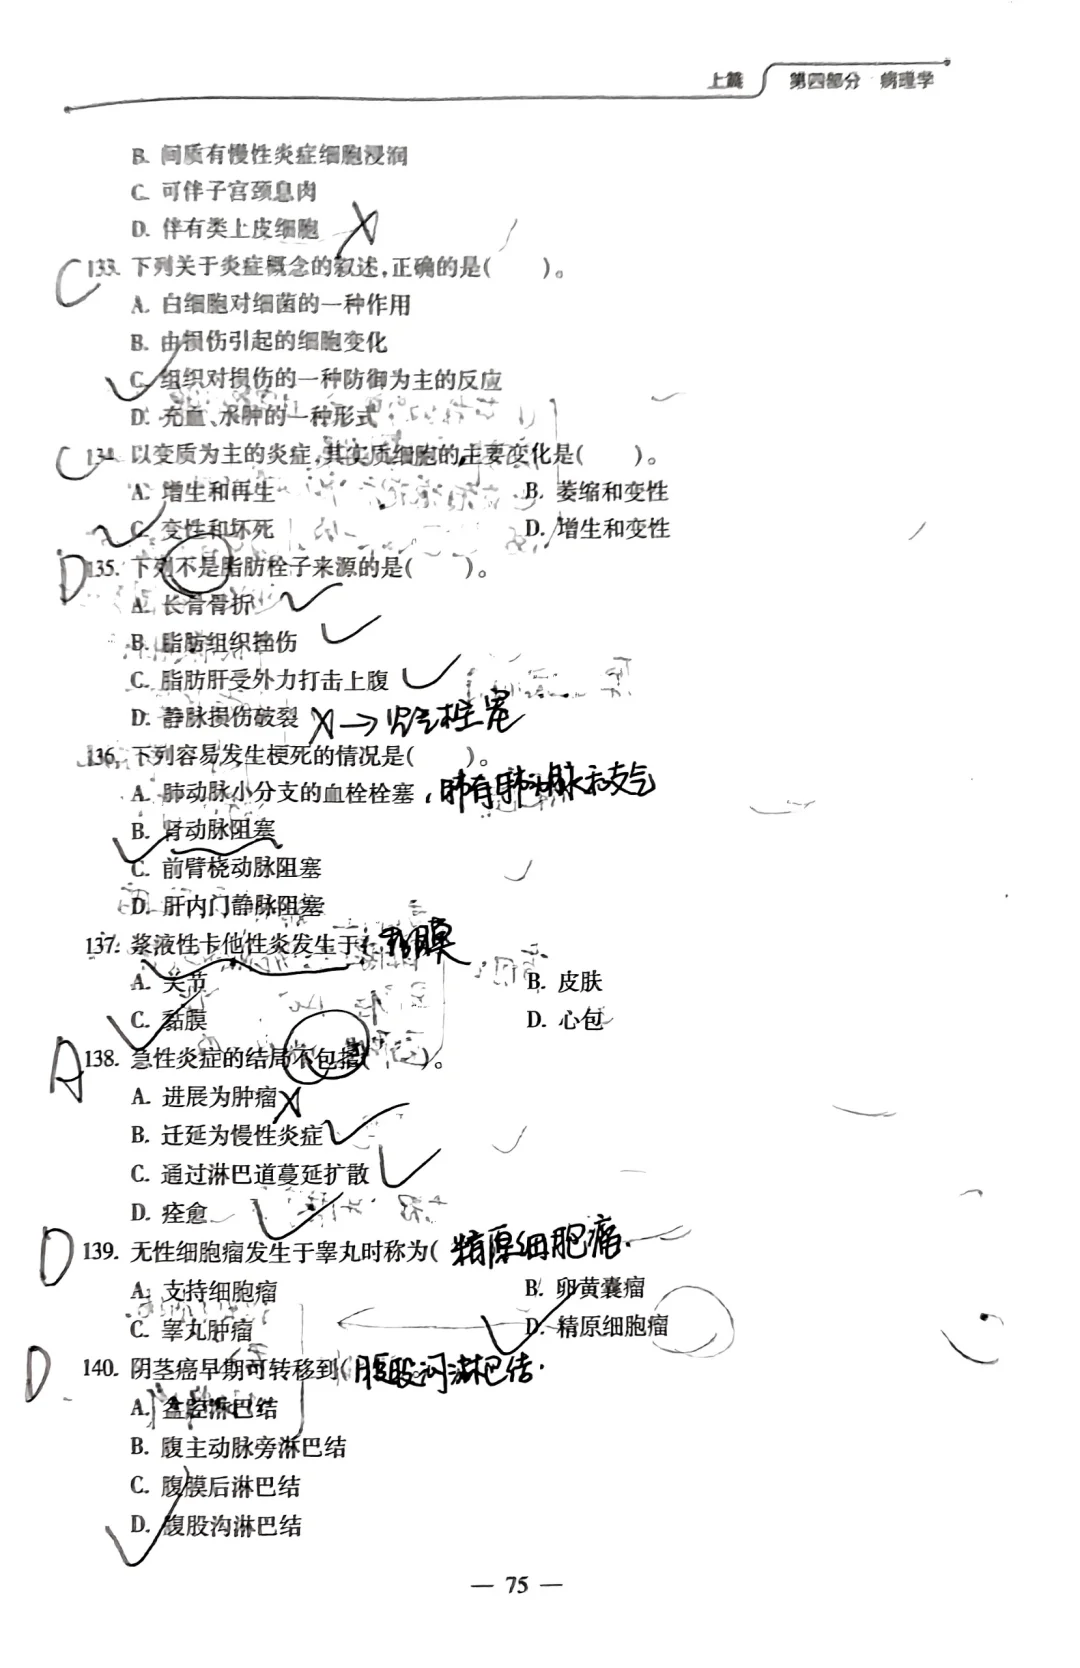 上篇 第四部分 病理学
B. 间质有慢性炎症细胞浸润
C. 可伴子宫颈息肉
D. 伴有类上皮细胞 X
C 133. 下列关于炎症概念的叙述,正确的是( )。
A. 白细胞对细菌的一种作用
B. 由损伤引起的细胞变化
C. 组织对损伤的一种防御为主的反应
D. 充血、水肿的一种形式
C 134. 以变质为主的炎症,其实质细胞的主要变化是( )。
A. 增生和再生 B. 萎缩和变性
C. 变性和坏死 D. 增生和变性
D 135. 下列不是脂肪栓子来源的是( )。
A. 长骨骨折
B. 脂肪组织挫伤
C. 脂肪肝受外力打击上腹
D. 静脉损伤破裂 X→ 栓塞
136. 下列容易发生梗死的情况是( )。
A. 肺动脉小分支的血栓栓塞 肺有肺动脉和支气
B. 肾动脉阻塞
C. 前臂桡动脉阻塞
D. 肝内门静脉阻塞
137. 浆液性卡他性炎发生于( 黏膜
A. 关节 B. 皮肤
C. 黏膜 D. 心包
A 138. 急性炎症的结局不包括( )。
A. 进展为肿瘤 X
B. 迁延为慢性炎症
C. 通过淋巴道蔓延扩散
D. 痊愈
D 139. 无性细胞瘤发生于睾丸时称为( 精原细胞瘤.
A. 支持细胞瘤 B. 卵黄囊瘤
C. 睾丸肿瘤 D. 精原细胞瘤
D 140. 阴茎癌早期可转移到( 腹股沟淋巴结.
A. 盆腔淋巴结
B. 腹主动脉旁淋巴结
C. 腹膜后淋巴结
D. 腹股沟淋巴结
— 75 —